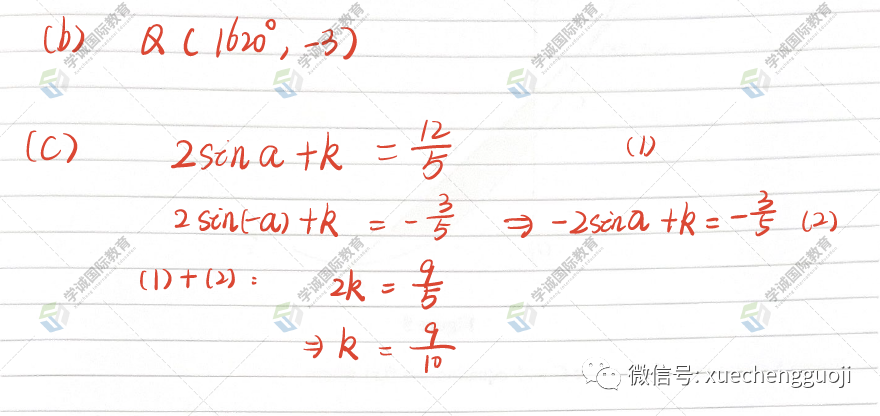 (b) Q (1620°, -3)
(c) 2 sin a + k = 12/5 (1)
2 sin(-a) + k = - 3/5 ⇒ -2sin a + k = - 3/5 (2)
(1) + (2) : 2k = 9/5
⇒ k = 9/10
微信号: xuechengguoji
学诚国际教育
学诚国际教育
学诚国际教育
学诚国际教育
学诚国际教育
学诚国际教育
学诚国际教育
学诚国际教育